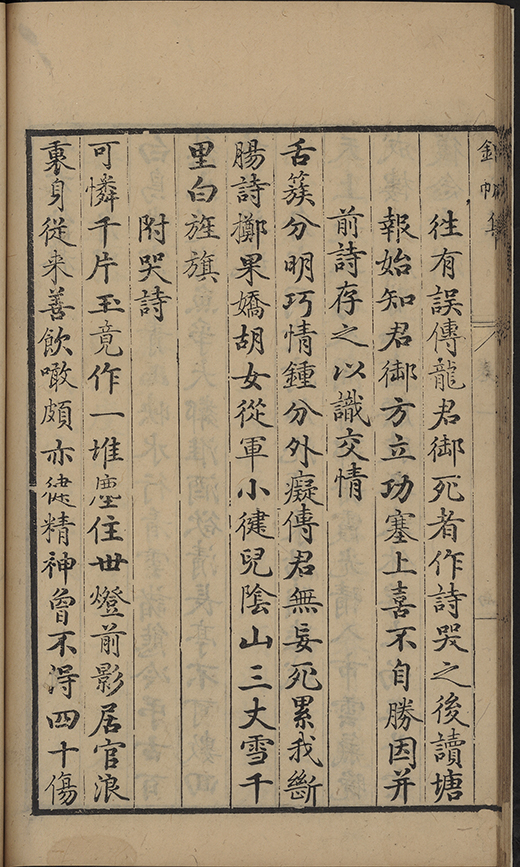 錦帆集
往有誤傳龍君御死者作詩哭之後讀塘
報始知君御方立功塞上喜不自勝因并
前詩存之以識交情
舌簇分明巧情鍾分外癡傳君無妄死累我斷
腸詩擲果嬌胡女從軍小徤兒陰山三丈雪千
里白旌旗
附哭詩
可憐千片玉竟作一堆塵住世燈前影居官浪
裏身從来善飲噉頗亦徤精神曾不得四十傷